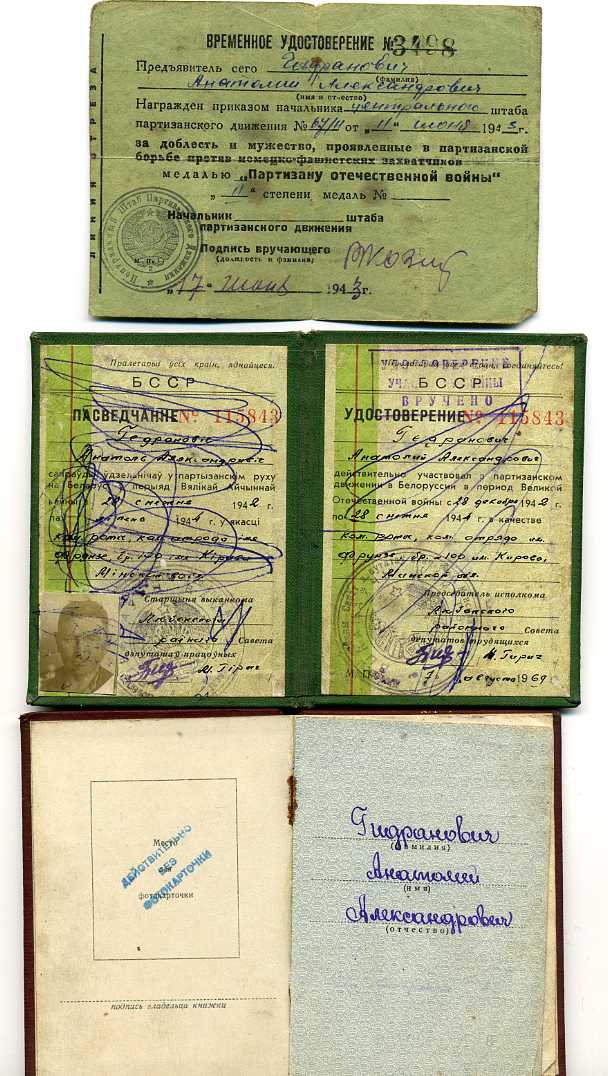 ЛИНИЯ ОТРЕЗА
ВРЕМЕННОЕ УДОСТОВЕРЕНИЕ № 3498
Предъявитель сего Гидранович
(фамилия)
Анатолий Александрович
(имя и отчество)
Награжден приказом начальника центрального штаба
партизанского движения № 67/н от „ 11 " июня 1943 г.
за доблесть и мужество, проявленные в партизанской
борьбе против немецко-фашистских захватчиков
медалью „Партизану отечественной войны"
„ II " степени медаль №
Начальник штаба
партизанского движения
Подпись вручающего
(должность и фамилия)
„17" июня 1943 г.
Пралетарыі ўсіх краін, яднайцеся!
БССР
ПАСВЕДЧАННЕ № 115843
Анатоль Александравіч
сапраўды ўдзельнічаў у партызанскім руху
на Беларусі ў перыяд Вялікай Айчыннай
вайны з 28 снежня 1942 г.
па 1944 г. у якасці
Мінскай вобл.
Старшыня выканкома
Любанскага
раённага Савета
дэпутатаў працоўных
М. Гірыч
соединяйтесь!
УДОСТОВЕРЕНИЕ
БССР
ВРУЧЕНО
УДОСТОВЕРЕНИЕ № 115843
Гедранович
Анатолий Александрович
действительно участвовал в партизанском
движении в Белоруссии в период Великой
Отечественной войны с 28 декабря 1942
по 1944 г. в качестве
ком. роты, ком. отряда им.
Фрунзе, бр. 100 им. Кирова,
Минской обл.
Председатель исполкома
Любанского
районного Совета
депутатов трудящихся
М. Гирич
М. П. августа 1969
Место
для
фотокарточки
ДЕЙСТВИТЕЛЬНО
БЕЗ
ФОТОКАРТОЧКИ
подпись владельца книжки
Гидранович
(фамилия)
Анатолий
(имя)
Александрович
(отчество)